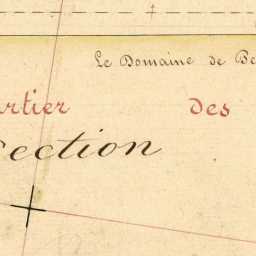 Le Domaine de Be
rtier des
ection